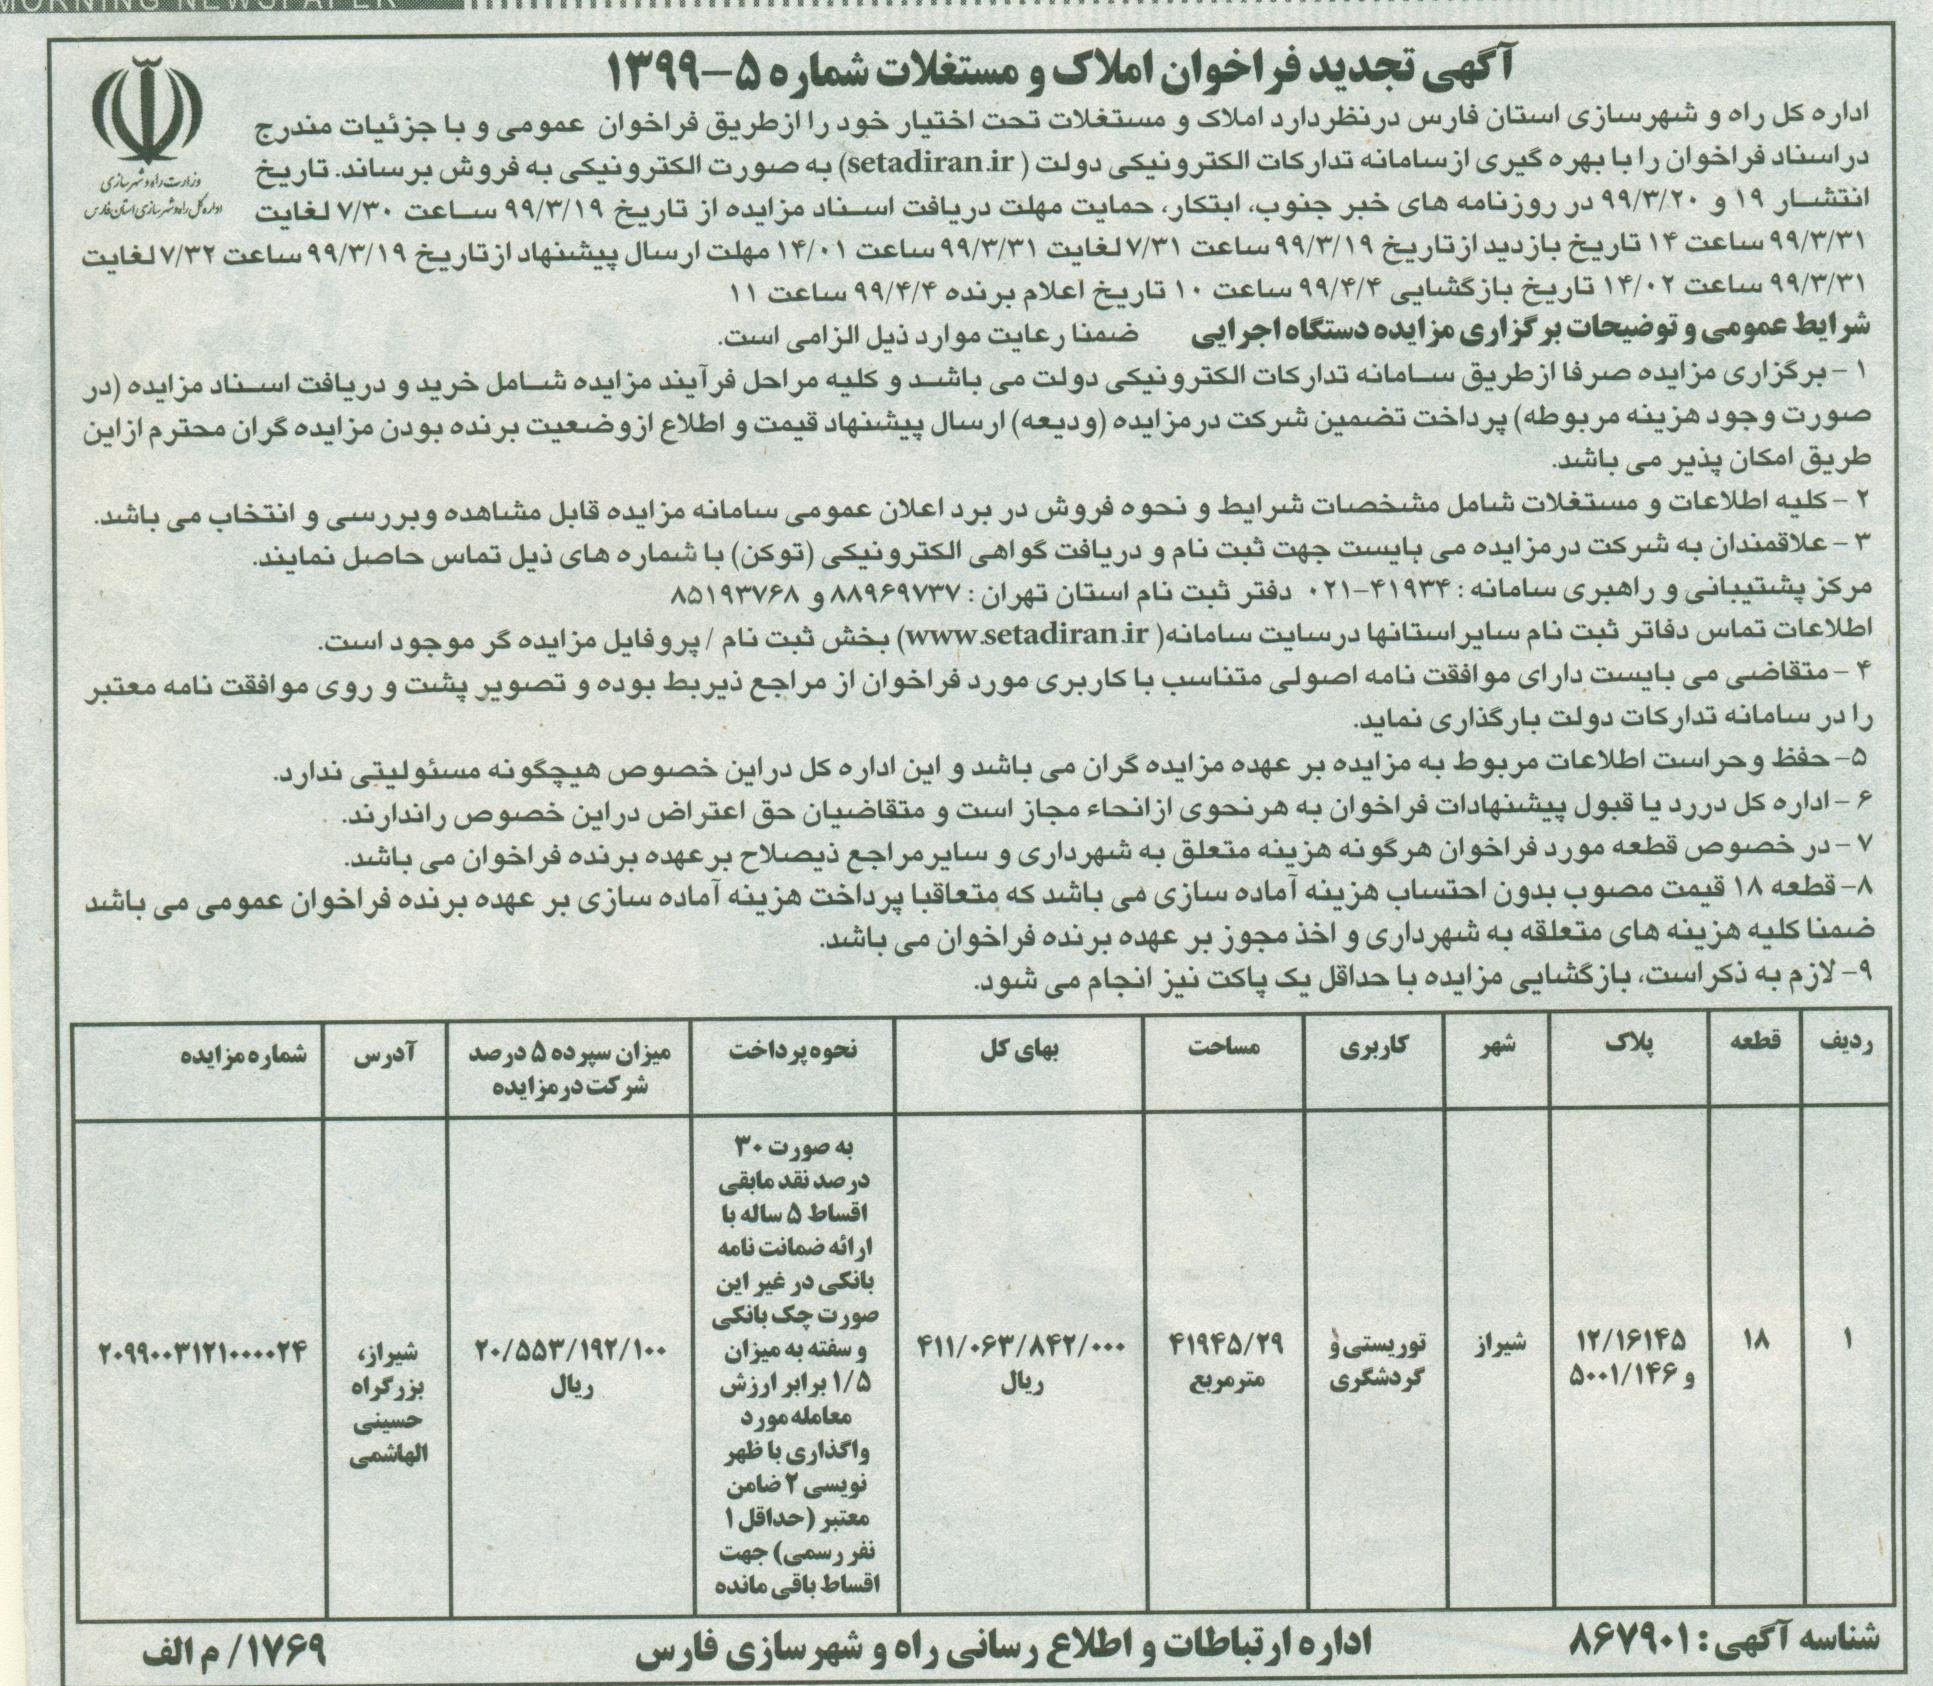 MORNING NEWSPAPER
آگهی تجدید فراخوان املاک و مستغلات شماره ۵-۱۳۹۹
وزارت راه و شهرسازی
اداره کل راه و شهرسازی استان فارس
اداره کل راه و شهرسازی استان فارس درنظردارد املاک و مستغلات تحت اختیار خود را ازطریق فراخوان عمومی و با جزئیات مندرج
دراسناد فراخوان را با بهره گیری ازسامانه تدارکات الکترونیکی دولت ( setadiran.ir) به صورت الکترونیکی به فروش برساند. تاریخ
انتشار ۱۹ و ۹۹/۳/۲۰ در روزنامه های خبر جنوب، ابتکار، حمایت مهلت دریافت اسناد مزایده از تاریخ ۹۹/۳/۱۹ ساعت ۷/۳۰ لغایت
۹۹/۳/۳۱ ساعت ۱۴ تاریخ بازدید ازتاریخ ۹۹/۳/۱۹ ساعت ۷/۳۱ لغایت ۹۹/۳/۳۱ ساعت ۱۴/۰۱ مهلت ارسال پیشنهاد ازتاریخ ۹۹/۳/۱۹ ساعت ۷/۳۲ لغایت
۹۹/۳/۳۱ ساعت ۱۴/۰۲ تاریخ بازگشایی ۹۹/۴/۴ ساعت ۱۰ تاریخ اعلام برنده ۹۹/۴/۴ ساعت ۱۱
شرایط عمومی و توضیحات برگزاری مزایده دستگاه اجرایی ضمنا رعایت موارد ذیل الزامی است.
۱ - برگزاری مزایده صرفا ازطریق سامانه تدارکات الکترونیکی دولت می باشد و کلیه مراحل فرآیند مزایده شامل خرید و دریافت اسناد مزایده (در
صورت وجود هزینه مربوطه) پرداخت تضمین شرکت درمزایده (ودیعه) ارسال پیشنهاد قیمت و اطلاع ازوضعیت برنده بودن مزایده گران محترم ازاین
طریق امکان پذیر می باشد.
۲ - کلیه اطلاعات و مستغلات شامل مشخصات شرایط و نحوه فروش در برد اعلان عمومی سامانه مزایده قابل مشاهده وبررسی و انتخاب می باشد.
۳ - علاقمندان به شرکت درمزایده می بایست جهت ثبت نام و دریافت گواهی الکترونیکی (توکن) با شماره های ذیل تماس حاصل نمایند.
مرکز پشتیبانی و راهبری سامانه : ۴۱۹۳۴-۰۲۱ دفتر ثبت نام استان تهران : ۸۸۹۶۹۷۳۷ و ۸۵۱۹۳۷۶۸
اطلاعات تماس دفاتر ثبت نام سایراستانها درسایت سامانه( www.setadiran.ir) بخش ثبت نام / پروفایل مزایده گر موجود است.
۴ - متقاضی می بایست دارای موافقت نامه اصولی متناسب با کاربری مورد فراخوان از مراجع ذیربط بوده و تصویر پشت و روی موافقت نامه معتبر
را در سامانه تدارکات دولت بارگذاری نماید.
۵- حفظ وحراست اطلاعات مربوط به مزایده بر عهده مزایده گران می باشد و این اداره کل دراین خصوص هیچگونه مسئولیتی ندارد.
۶ - اداره کل دررد یا قبول پیشنهادات فراخوان به هرنحوی ازانحاء مجاز است و متقاضیان حق اعتراض دراین خصوص راندارند.
۷ - در خصوص قطعه مورد فراخوان هرگونه هزینه متعلق به شهرداری و سایرمراجع ذیصلاح برعهده برنده فراخوان می باشد.
۸- قطعه ۱۸ قیمت مصوب بدون احتساب هزینه آماده سازی می باشد که متعاقبا پرداخت هزینه آماده سازی بر عهده برنده فراخوان عمومی می باشد
ضمنا کلیه هزینه های متعلقه به شهرداری و اخذ مجوز بر عهده برنده فراخوان می باشد.
۹- لازم به ذکراست، بازگشایی مزایده با حداقل یک پاکت نیز انجام می شود.
ردیف
قطعه
پلاک
شهر
کاربری
مساحت
بهای کل
نحوه پرداخت
میزان سپرده ۵ درصد
شرکت درمزایده
آدرس
شماره مزایده
۱
۱۸
۱۲/۱۶۱۴۵
و ۵۰۰۱/۱۴۶
شیراز
توریستی و
گردشگری
۴۱۹۴۵/۲۹
مترمربع
۴۱۱/۰۶۳/۸۴۲/۰۰۰
ریال
به صورت ۳۰
درصد نقد مابقی
اقساط ۵ ساله با
ارائه ضمانت نامه
بانکی در غیر این
صورت چک بانکی
و سفته به میزان
۱/۵ برابر ارزش
معامله مورد
واگذاری با ظهر
نویسی ۲ ضامن
معتبر (حداقل ۱
نفر رسمی) جهت
اقساط باقی مانده
۲۰/۵۵۳/۱۹۲/۱۰۰
ریال
شیراز،
بزرگراه
حسینی
الهاشمی
۲۰۹۹۰۰۳۱۲۱۰۰۰۰۲۴
شناسه آگهی : ۸۶۷۹۰۱
اداره ارتباطات و اطلاع رسانی راه و شهرسازی فارس
۱۷۶۹/ م الف